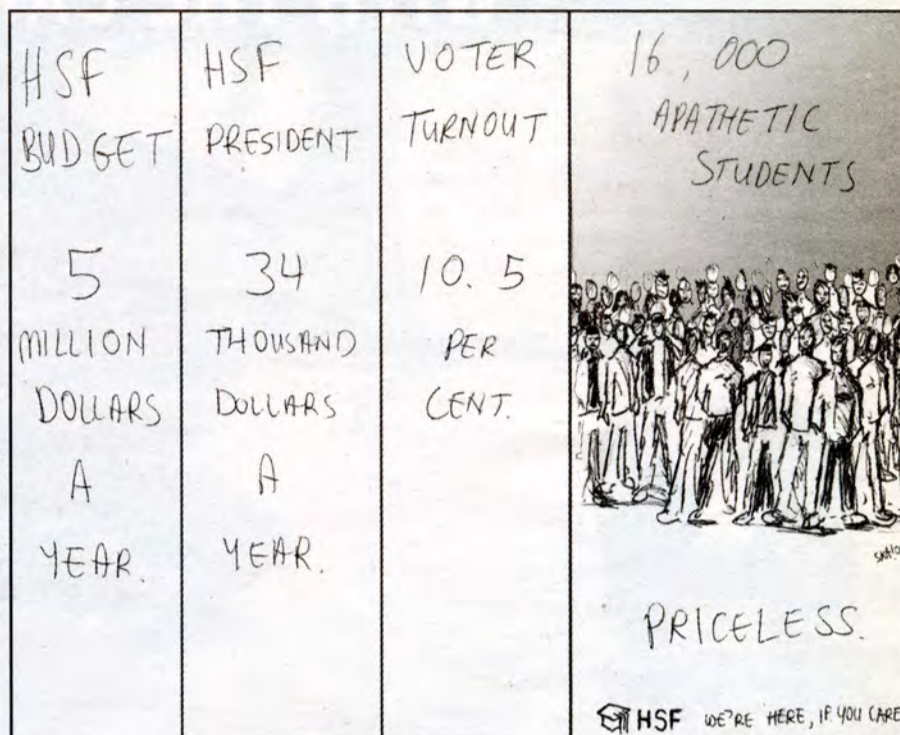 HSF
BUDGET
5
MILLION
DOLLARS
A
YEAR.
HSF
PRESIDENT
34
THOUSAND
DOLLARS
A
YEAR.
VOTER
TURNOUT
10.5
PER
CENT.
16,000
APATHETIC
STUDENTS
PRICELESS.
HSF WE'RE HERE, IF YOU CARE